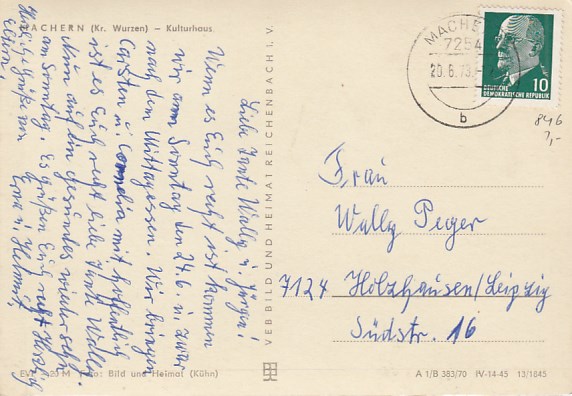 MACHERN (Kr. Wurzen) — Kulturhaus
Liebe Tante Wally u. Jürgen!
Wenn es Euch recht ist kommen
wir am Sonntag den 24.6. u. zwar
nach dem Mittagessen. Wir bringen
Carsten u. Cornelia mit hoffentlich
ist es Euch recht liebe Tante Wally
Nun auf ein gesundes wiedersehn
am Sonntag. Es grüßen Euch recht herzlich
Erna u. Helmut,
Herzliche Grüße von
Eltern.
EVP 0,20 M Foto: Bild und Heimat (Kühn)
VEB BILD UND HEIMAT REICHENBACH I. V.
MACHERN
7254
20.6.73.
b
10
DEUTSCHE
DEMOKRATISCHE REPUBLIK
846
?,-
Frau
Wally Peger
7124 Holzhausen/Leipzig
Südstr. 16
A 1/B 383/70 IV-14-45 13/1845